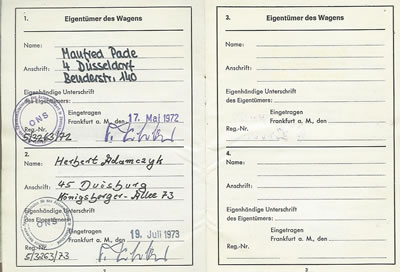 1. Eigentümer des Wagens
Name: Manfred Pade
Anschrift: 4 Düsseldorf
Benderstr. 140
Eigenhändige Unterschrift
des Eigentümers:
Eingetragen
Frankfurt a. M., den 17. Mai 1972
Reg.-Nr.
ONS
5/3263/72
2.
Name: Herbert Adamczyk
Anschrift: 45 Duisburg
Königsberger-Allee 73
Eigenhändige Unterschrift
des Eigentümers:
Eingetragen
Frankfurt a. M., den 19. Juli 1973
Reg.-Nr.
ONS
5/3263/73
2
3. Eigentümer des Wagens
Name:
Anschrift:
Eigenhändige Unterschrift
des Eigentümers:
Eingetragen
Frankfurt a. M., den
Reg.-Nr.
4.
Name:
Anschrift:
Eigenhändige Unterschrift
des Eigentümers:
Eingetragen
Frankfurt a. M., den
Reg.-Nr.
3